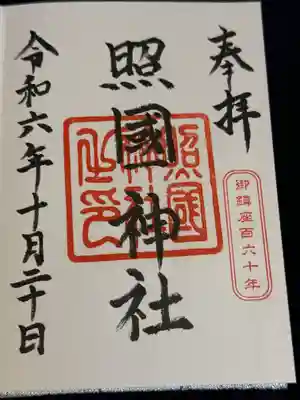 奉拝
御鎮座百六十年
照國神社
照國神社之印
令和六年十月二十日